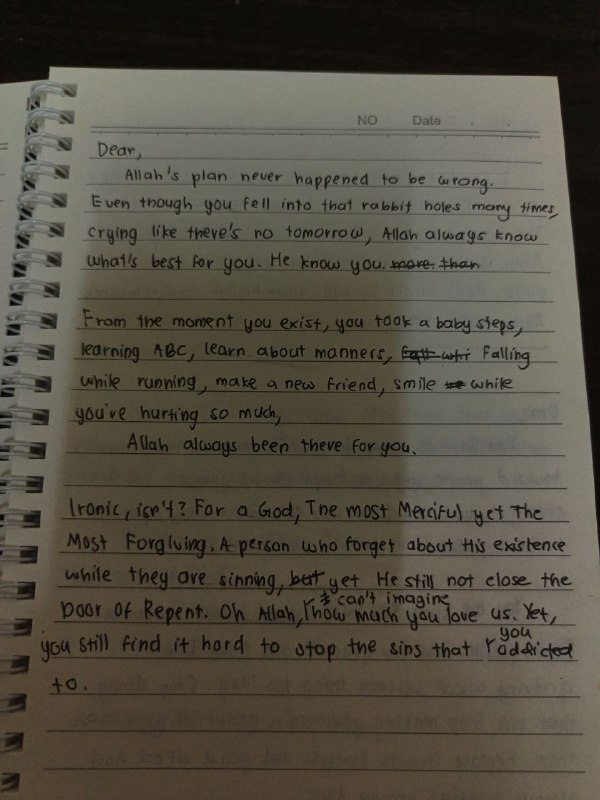 NO Date
Dear,
Allah's plan never happened to be wrong.
Even though you fell into that rabbit holes many times,
crying like there's no tomorrow, Allah always know
what's best for you. He know you. more than
From the moment you exist, you took a baby steps,
learning ABC, learn about manners, falling
while running, make a new friend, smile while
you've hurting so much,
Allah always been there for you.
Ironic, isn't? For a God, The most Merciful yet The
Most Forgiving. A person who forget about His existence
while they are sinning, but yet He still not close the
Door of Repent. Oh Allah, I can't imagine how much you love us. Yet,
you still find it hard to stop the sins that you addicted
to.